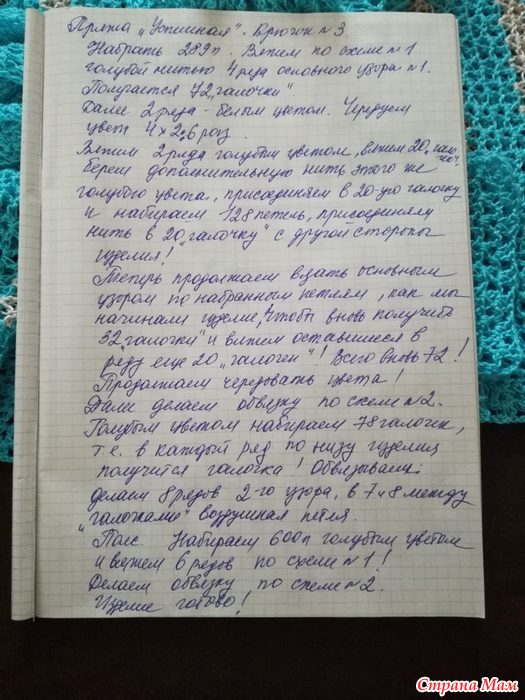 Пряжа „Успешная". Крючок №3
Набрать 289п. Вяжем по схеме №1
голубой нитью 4 ряда основного узора №1.
Получается 72„галочки"
Далее 2 ряда - белым цветом. Чередуем
цвет 4х2; 6 раз.
Вяжем 2 ряда голубым цветом, вяжем 20„галочек",
берем дополнительную нить этого же
голубого цвета, присоединяем в 20-ую галочку
и набираем 128 петель, присоединяем
нить в 20„галочку" с другой стороны
изделия!
Теперь продолжаем вязать основным
узором по набранным петлям, как мы
начинали изделие, чтобы вновь получить
32„галочки" и вяжем оставшиеся в
ряду еще 20„галочек"! Всего вновь 72!
Продолжаем чередовать цвета!
Далее делаем обвязку по схеме №2.
Голубым цветом набираем 78 галочек,
т.е. в каждый ряд по низу изделия
получится галочка! Обвязываем:
делаем 8 рядов 2-го узора, в 7и8 между
„галочками" воздушная петля.
Пояс. Набираем 600п голубым цветом
и вяжем 6 рядов по схеме №1!
Делаем обвязку по схеме №2.
Изделие готово!
Страна Мам